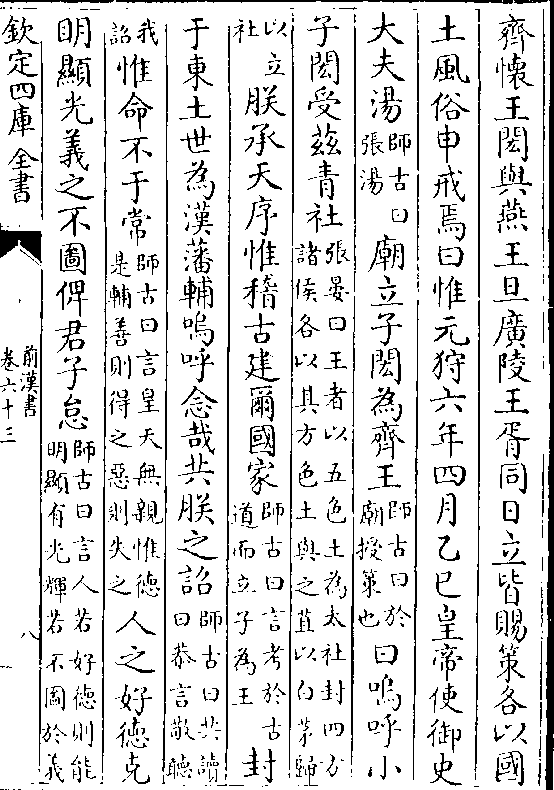 齊懷王閎與燕王旦廣陵王胥同日立皆賜策各以國
土風俗申戒焉曰惟元狩六年四月乙巳皇帝使御史
大夫湯師古曰張湯廟立子閎為齊王師古曰於廟授策也曰嗚呼小
子閎受茲青社張晏曰王者以五色土為太社封四方諸侯各以其方色土與之苴以白茅歸
以立社朕承天序惟稽古建爾國家師古曰言考於古道而立子為王封
于東土世為漢藩輔嗚呼念哉共朕之詔師古曰共讀曰恭言敬聽
我詔惟命不于常師古曰言皇天無親惟德是輔善則得之惡則失之人之好德克
明顯光義之不圖俾君子怠師古曰言人若好德則能明顯有光輝若不圖於義
欽定四庫全書
前漢書
卷六十三
八